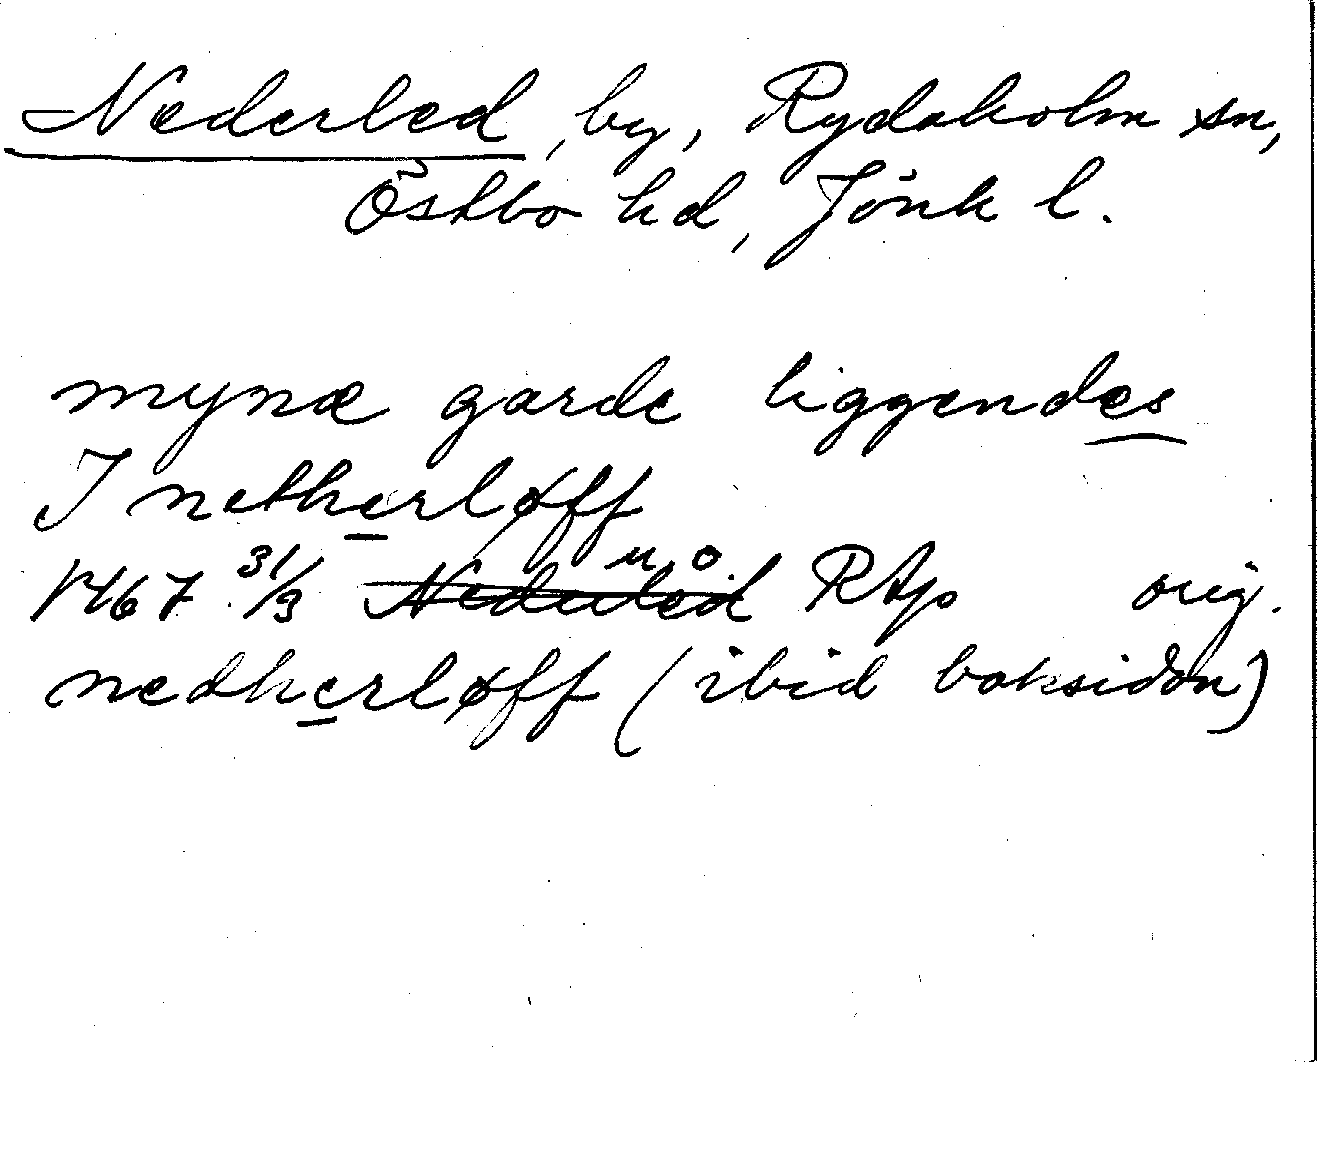 Nederled, by, Rydaholm sn,
Östbo hd, Jönk l.
mynæ garde liggendes
I netherløff
1467 31/3 u o RAp orig.
nedherløff (ibid baksidan)